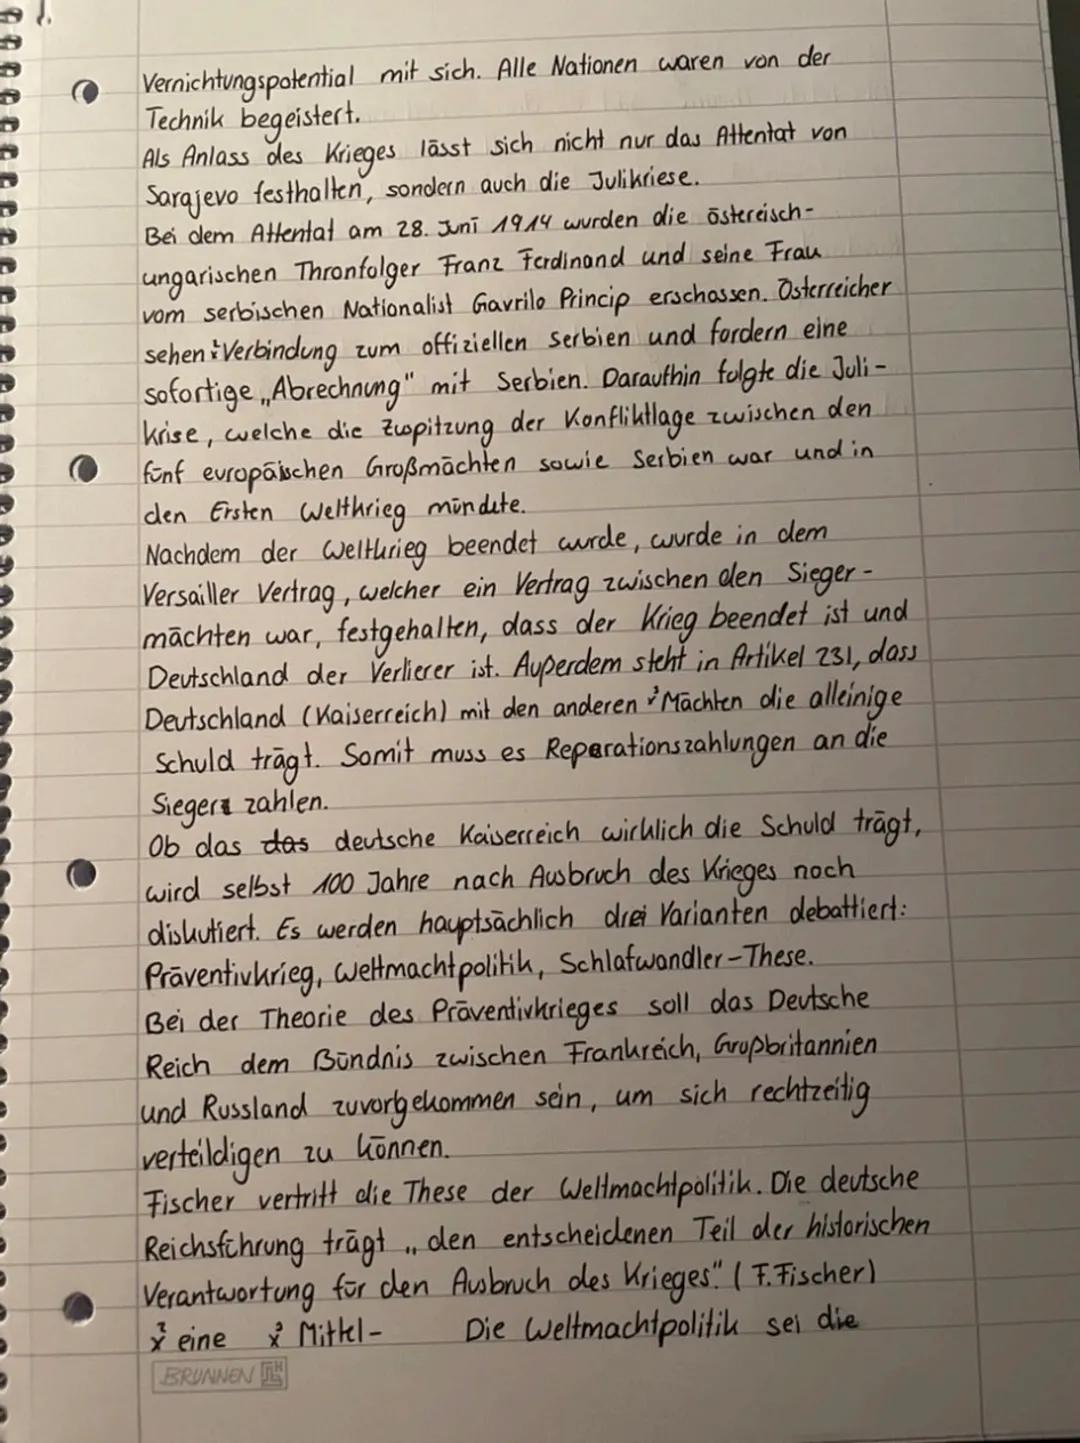 1.
Vernichtungspotential mit sich. Alle Nationen waren von der
Technik begeistert.
Als Anlass des Krieges lässt sich nicht nur das Attentat von
Sarajevo festhalten, sondern auch die Julikriese.
Bei dem Attentat am 28. Juni 1914 wurden die östereisch-
ungarischen Thronfolger Franz Ferdinand und seine Frau
vom serbischen Nationalist Gavrilo Princip erschossen. Österreicher
sehen ² Verbindung zum offiziellen Serbien und fordern eine
sofortige „Abrechnung" mit Serbien. Daraufhin folgte die Juli-
krise, welche die Zuspitzung der Konfliktlage zwischen den
fünf europäischen Großmächten sowie Serbien war und in
den Ersten Weltkrieg mündete.
Nachdem der Weltkrieg beendet wurde, wurde in dem
Versailler Vertrag, welcher ein Vertrag zwischen den Sieger-
mächten war, festgehalten, dass der Krieg beendet ist und
Deutschland der Verlierer ist. Außerdem steht in Artikel 231, dass
Deutschland (Kaiserreich) mit den anderen ³ Mächten die alleinige
Schuld trägt. Somit muss es Reparationszahlungen an die
Sieger zahlen.
Ob das das deutsche Kaiserreich wirklich die Schuld trägt,
wird selbst 100 Jahre nach Ausbruch des Krieges noch
diskutiert. Es werden hauptsächlich drei Varianten debattiert:
Präventivkrieg, Weltmachtpolitik, Schlafwandler-These.
Bei der Theorie des Präventivkrieges soll das Deutsche
Reich dem Bündnis zwischen Frankreich, Großbritannien
und Russland zuvorgekommen sein, um sich rechtzeitig
verteildigen zu können.
Fischer vertritt die These der Weltmachtpolitik. Die deutsche
Reichsführung trägt „den entscheidenen Teil der historischen
Verantwortung für den Ausbruch des Krieges." (F. Fischer)
x² eine x³ Mittel- Die Weltmachtpolitik sei die
BRUNNEN